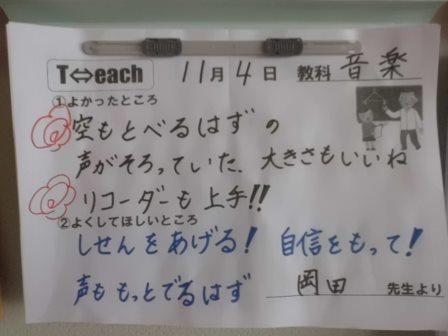 T⇔each 11月4日 教科 音楽
①よかったところ
空もとべるはずの
声がそろっていた、大きさもいいね
リコーダーも上手!!
②よくしてほしいところ
しせんをあげる! 自信をもって!
声ももっとでるはず 岡田 先生より